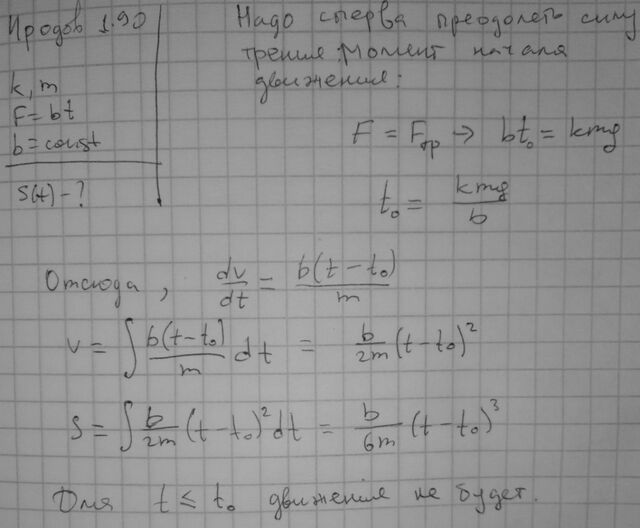 Иродов 1.90
k, m
F = bt
b = const
S(t) - ?
Надо сперва преодолеть силу
трения. Момент начала
движения:
F = Fтр → bt₀ = kmg
t₀ = kmg/b
Отсюда, dv/dt = b(t - t₀)/m
v = ∫ b(t - t₀)/m dt = b/2m (t - t₀)²
S = ∫ b/2m (t - t₀)² dt = b/6m (t - t₀)³
Для t ≤ t₀ движения не будет.